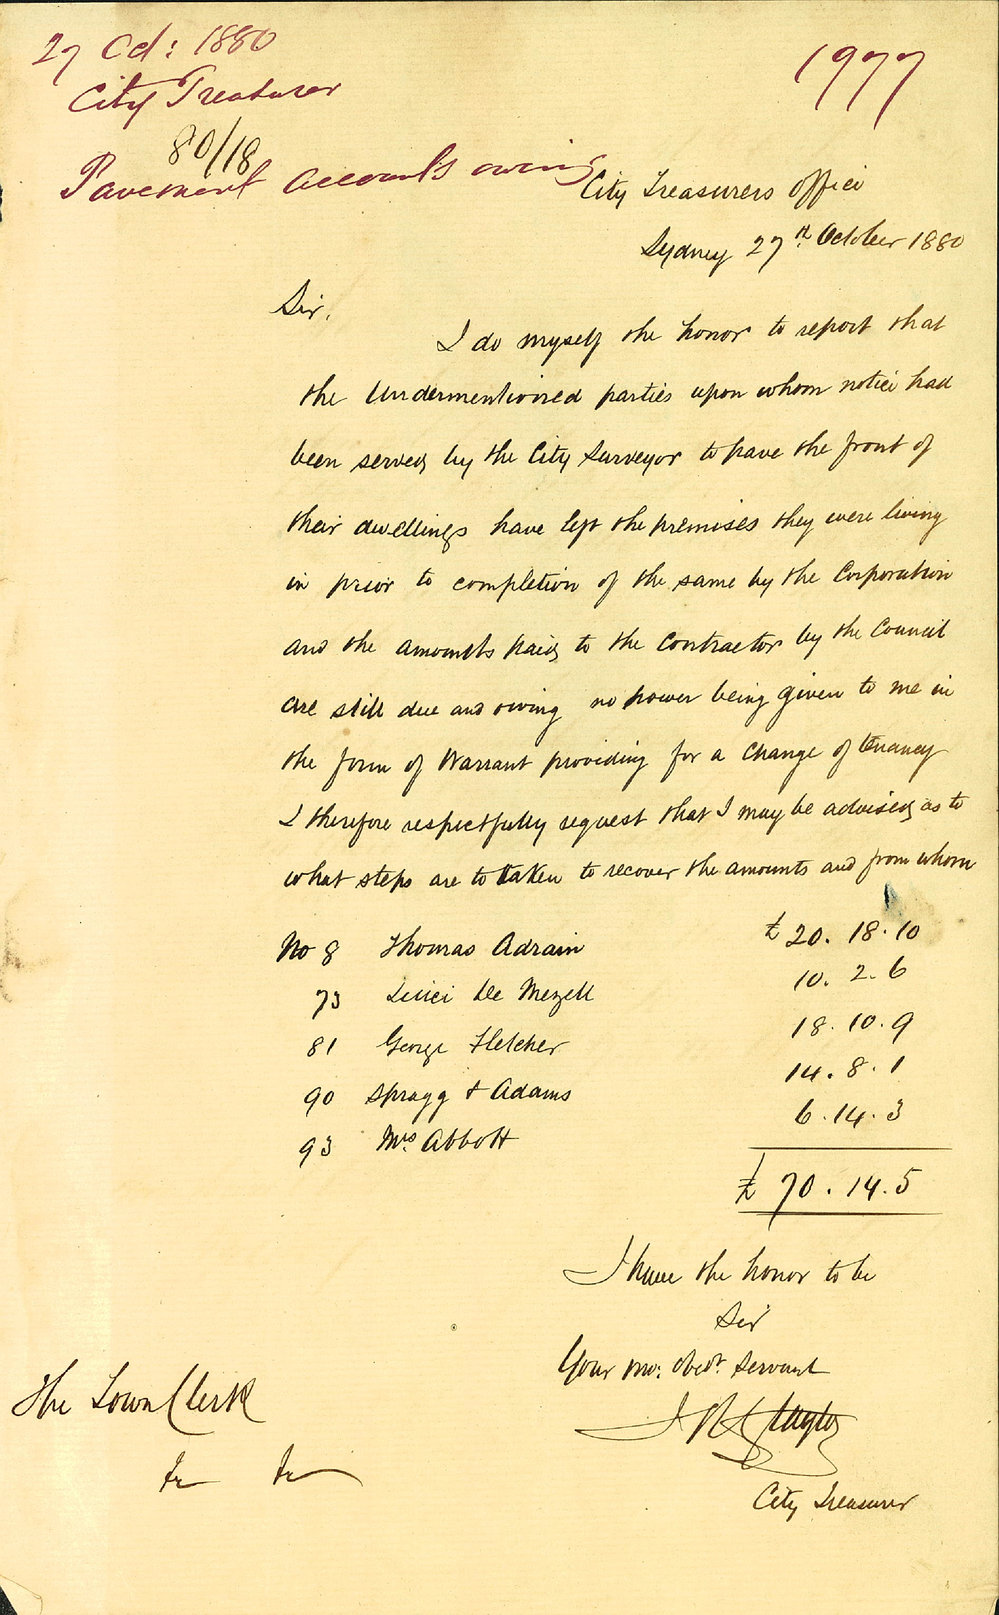 27 Oct: 1880
City Treasurer
80/18
Pavement accounts owing
1977
City Treasurers Office
Sydney 27th October 1880
Sir,
I do myself the honor to report that
the Undermentioned parties upon whom notice had
been served by the City Surveyor to pave the front of
their dwellings have left the premises they were living
in prior to completion of the same by the Corporation
and the amounts paid to the Contractor by the Council
are still due and owing no power being given to me in
the form of Warrant providing for a change of tenancy
I therefore respectfully request that I may be advised as to
what steps are to taken to recover the amounts and from whom
No 8 Thomas Adrain £20.18.10
73 De Mezell 10.2.6
81 George Fletcher 18.10.9
90 Spragg & Adams 14.8.1
93 Mrs. Abbott 6.14.3
£70.14.5
I have the honor to be
Sir
Your mo: obedt. Servant
City Treasurer
The Town Clerk